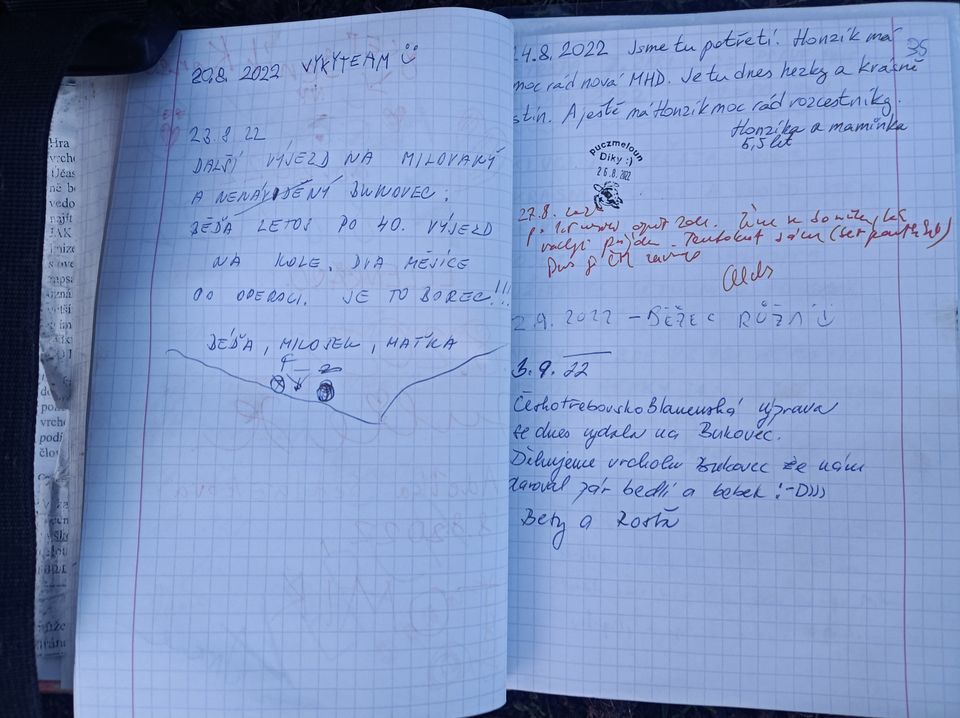 20.8. 2022 VYKYTEAM
23.8.22
DALŠÍ VÝJEZD NA MILOVANÝ
A NENÁVIDĚNÝ BUKOVEC.
DĚĎA LETOS PO 40. VÝJEZD
NA KOLE. DVA MĚSÍCE
PO OPERACI. JE TO BOREC!!!
DĚĎA, MILOŠEK, MAŤKA
35
24.8. 2022 Jsme tu potřetí. Honzík má
moc rád nová MHD. Je tu dnes hezky a krásně
stín. A ještě má Honzík moc rád rozcestníky.
Honzík a maminka
5,5 let
puczmeloun
Díky :)
26.8.2022
27.8.
opět
sám
2.9. 2022 – BĚŽEC RŮŽA
3.9. 22
ČeskotřebovskoBlanenská výprava
se dnes vydala na Bukovec.
Děkujeme vrcholu Bukovec že nám
daroval pár bedlí a bebek :-D)))
Bety a Rosťa